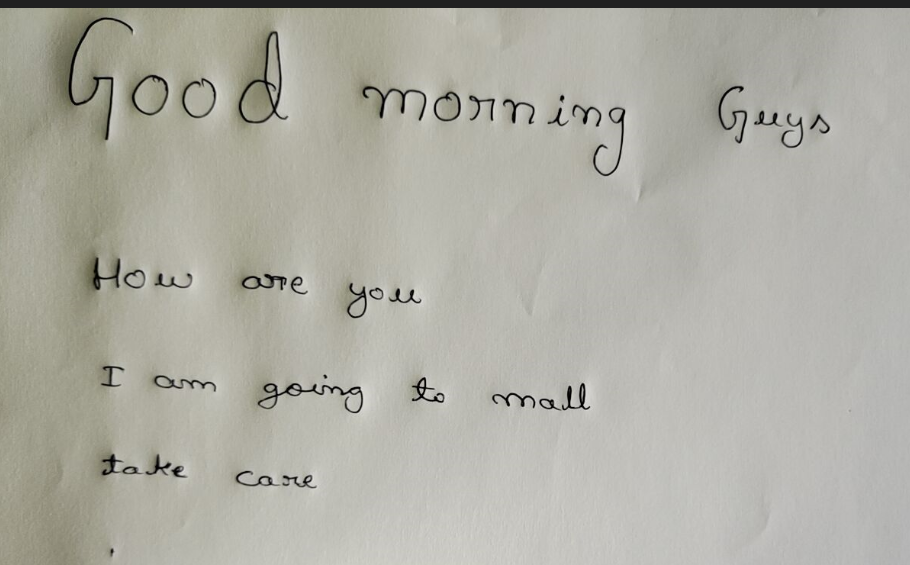 Good morning Guys
How are you
I am going to mall
take care